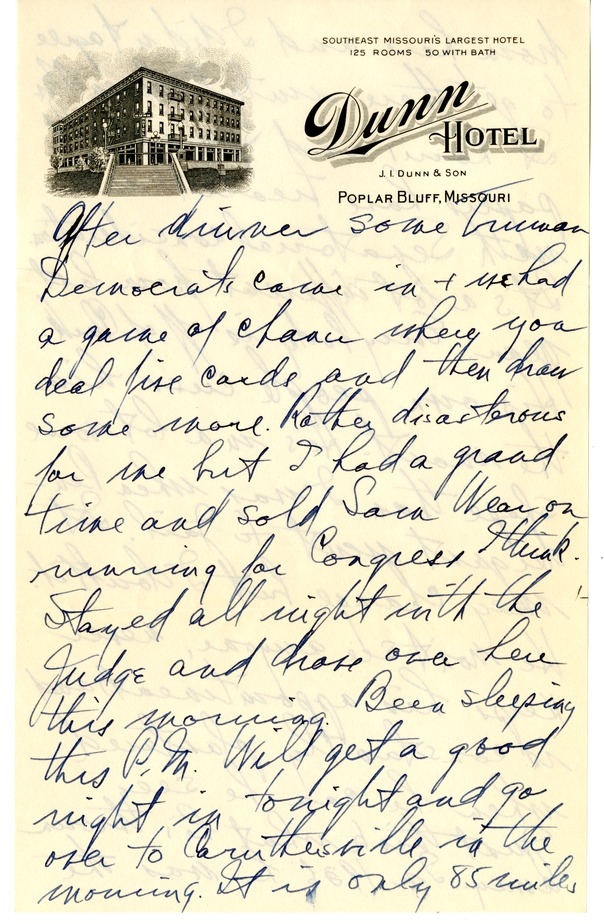 SOUTHEAST MISSOURI'S LARGEST HOTEL
125 ROOMS 50 WITH BATH
Dunn
HOTEL
J. I. DUNN & SON
POPLAR BLUFF, MISSOURI
After dinner some Truman
Democrats came in + we had
a game of chance where you
deal five cards and then draw
some more. Rather disasterous
for me but I had a grand
time and sold Sam Wear on
running for Congress I think.
Stayed all night with the
Judge and drove over here
this morning. Been sleeping
this P.M. Will get a good
night in tonight and go
over to Caruthersville in the
morning. It is only 85 miles